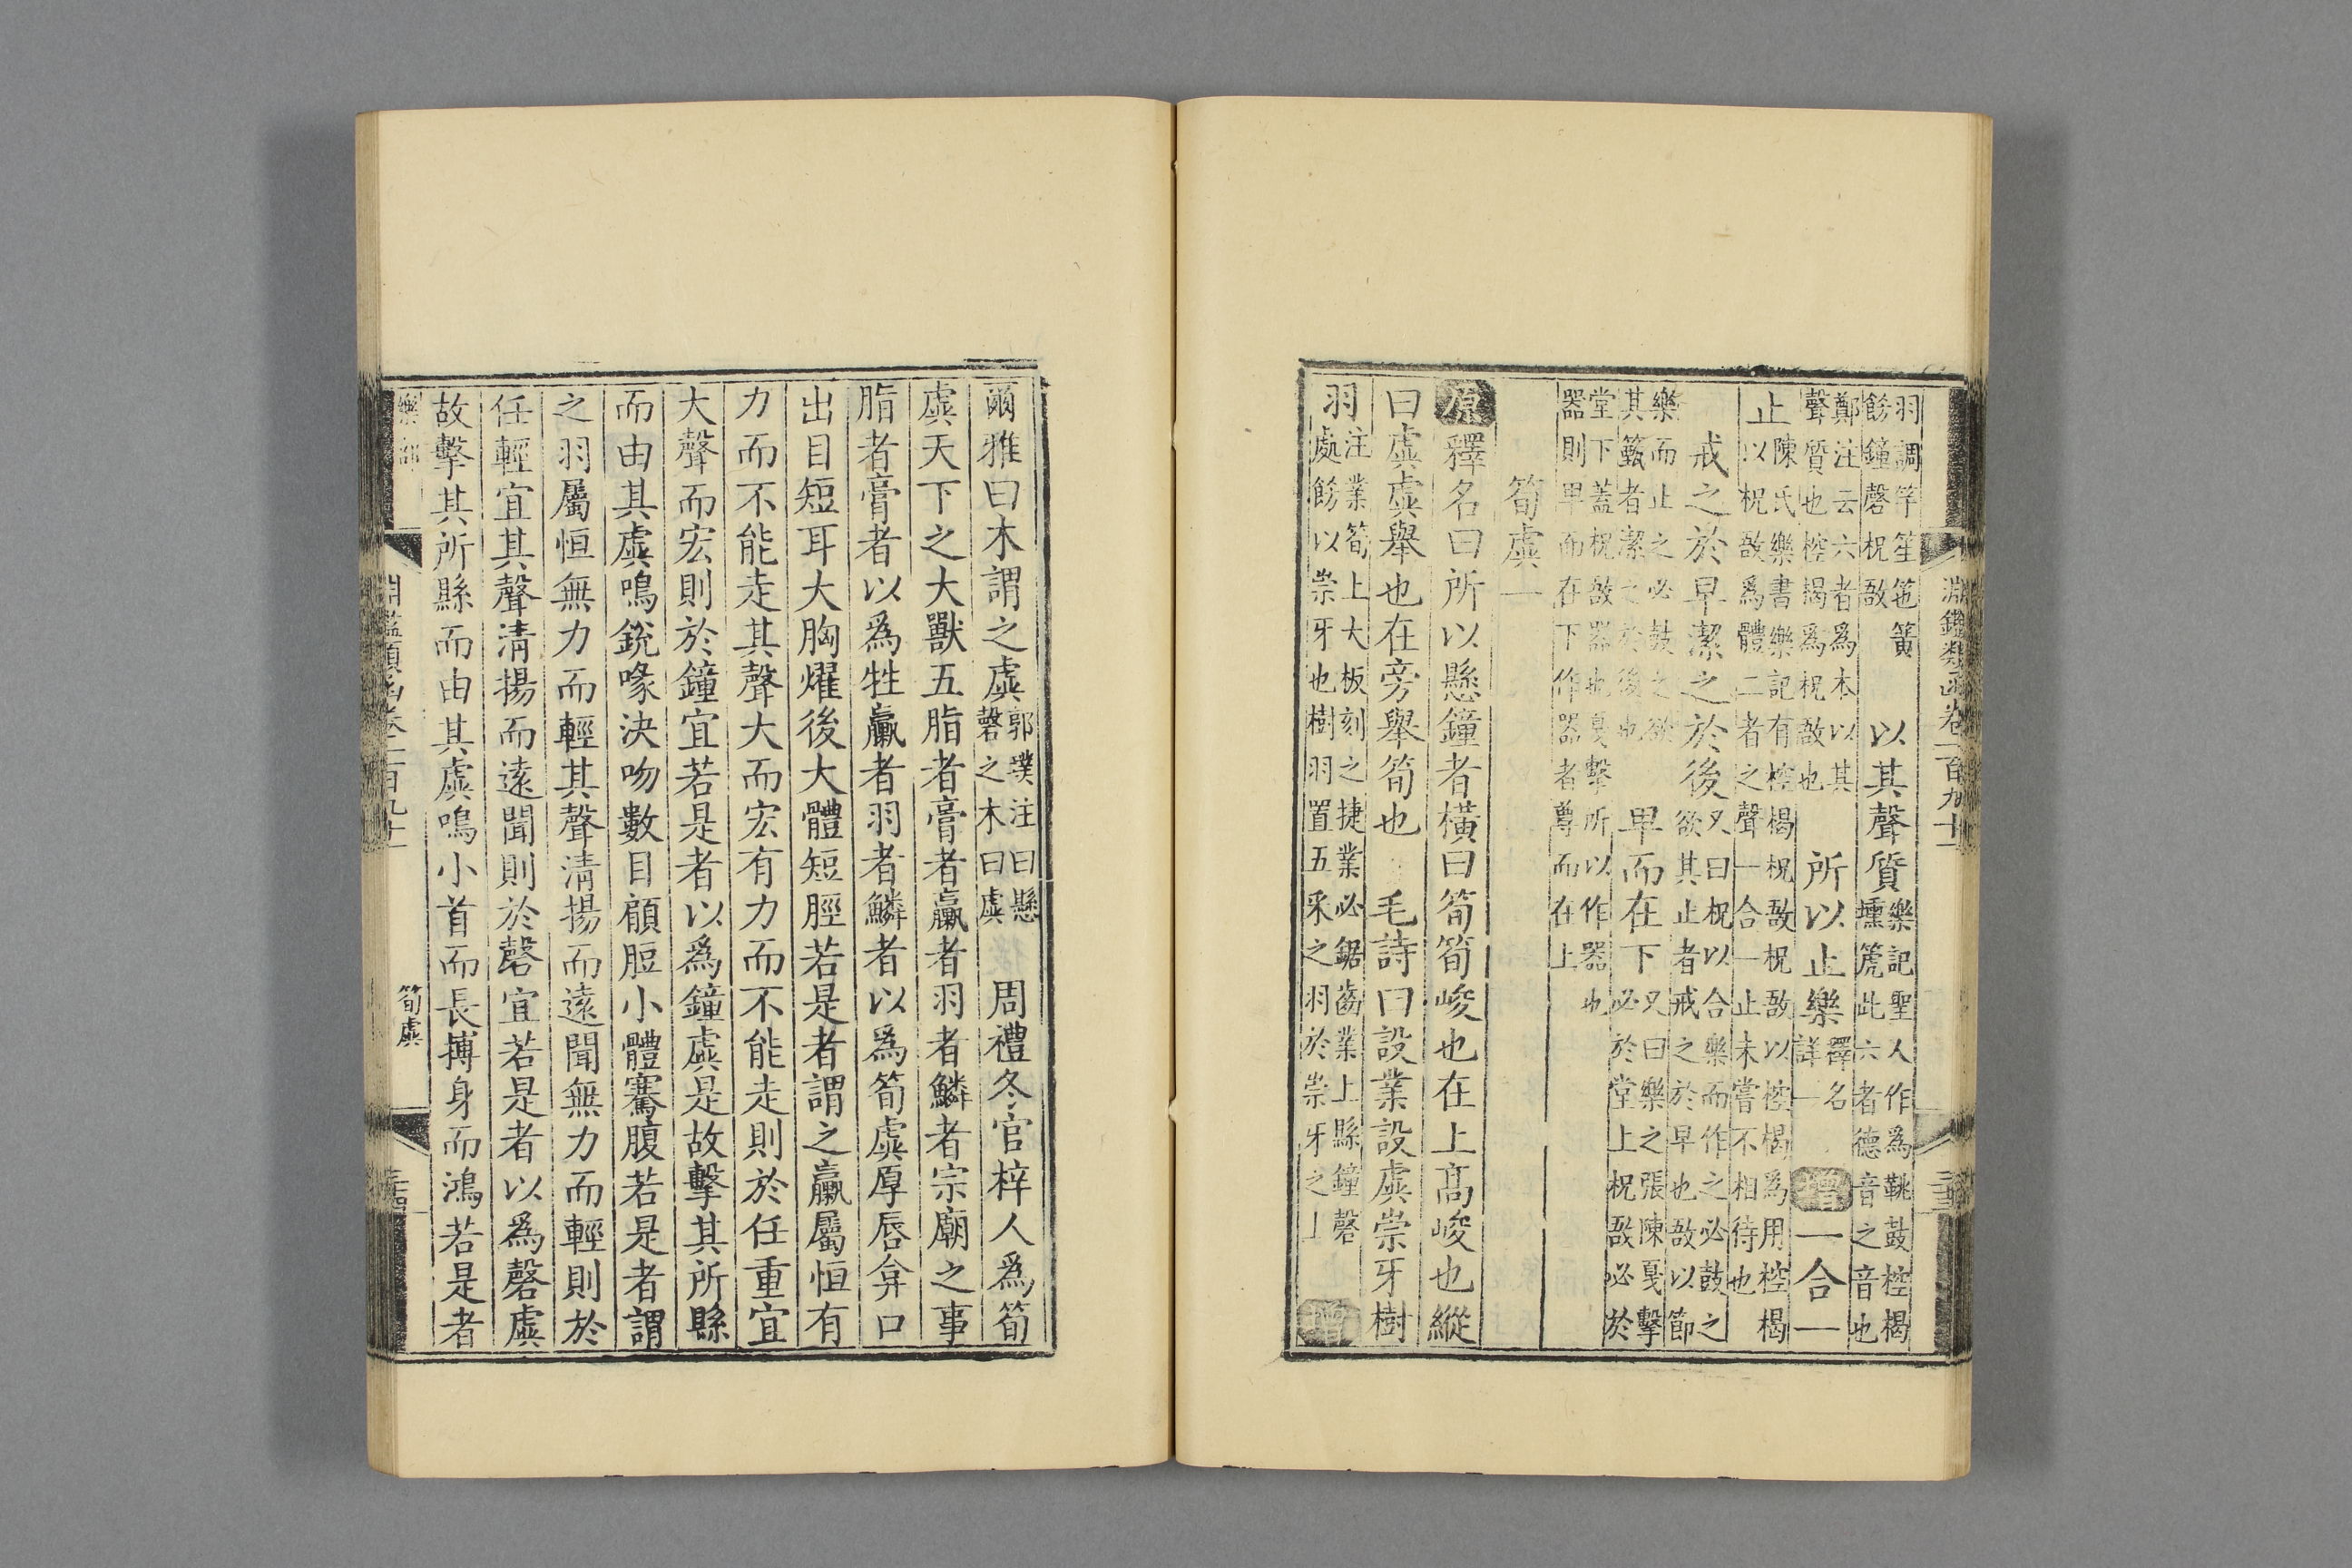 淵鑑類函卷一百九十一
羽調竽笙箎簧
飭鐘磬柷敔
以其聲質
樂記聖人作為鞉鼓椌楬
壎箎此六者德音之音也
鄭注云六者為本以其
聲質也椌楬為柷敔也
所以止樂
釋名
詳
增一合一
止
陳氏樂書樂記有椌楬柷敔柷敔以椌楬為用椌楬
以柷敔爲體二者之聲一合一止未嘗不相待也
戒之於早潔之於後
又曰柷以合樂而作之必鼓之
欲其止者戒之於早也敔以節
樂而止之必鼓之欲
其甄者潔之於後也
卑而在下
又曰樂之張陳戛擊
必於堂上柷敔必於
堂下蓋柷敔器也戛擊所以作器也
器則卑而在下作器者尊而在上
筍虡一
原釋名曰所以懸鐘者橫曰筍筍峻也在上高峻也縱
曰虡虡舉也在旁舉筍也 毛詩曰設業設虡崇牙樹
羽
注業筍上大板刻之捷業必鋸齒業上縣鐘磬
處飭以崇牙也樹羽置五采之羽於崇牙之上
增
爾雅曰木謂之虡
郭璞注曰懸
磬之木曰虡
周禮冬官梓人爲筍
虡天下之大獸五脂者膏者臝者羽者鱗者宗廟之事
脂者膏者以爲牲臝者羽者鱗者以爲筍虡厚唇弇口
出目短耳大胸燿後大體短脰若是者謂之臝屬恒有
力而不能走其聲大而宏有力而不能走則於任重宜
大聲而宏則於鐘宜若是者以爲鐘虡是故擊其所縣
而由其虡鳴銳喙決吻數目顅脰小體騫腹若是者謂
之羽屬恒無力而輕其聲清揚而遠聞無力而輕則於
任輕宜其聲清揚而遠聞則於磬宜若是者以爲磬虡
故擊其所縣而由其虡鳴小首而長摶身而鴻若是者
樂部
淵鑑類函卷一百九十一
筍虡